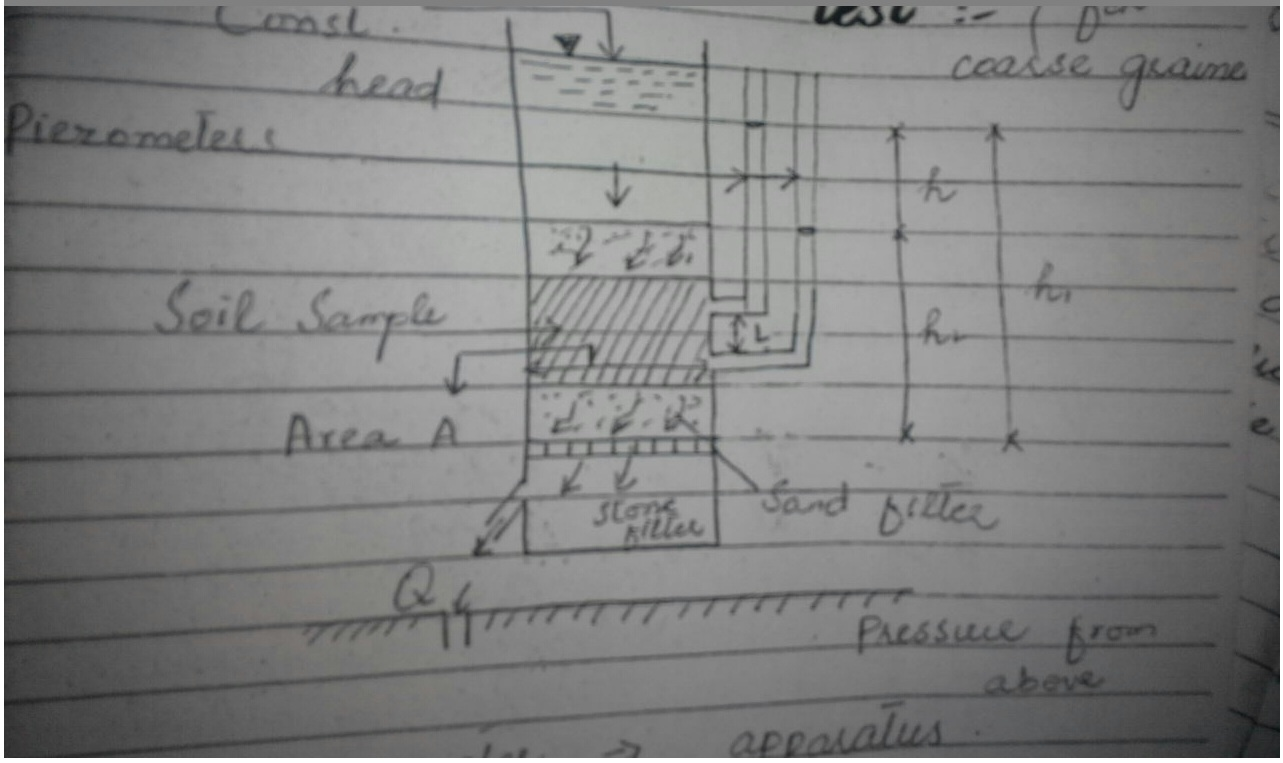 Const.
test :- (
head
coarse graine
Piezometers
h
h₁
Soil Sample
L
h₂
Area A
Sand filter
stone
filter
Q
Pressure from
above
→ apparatus.